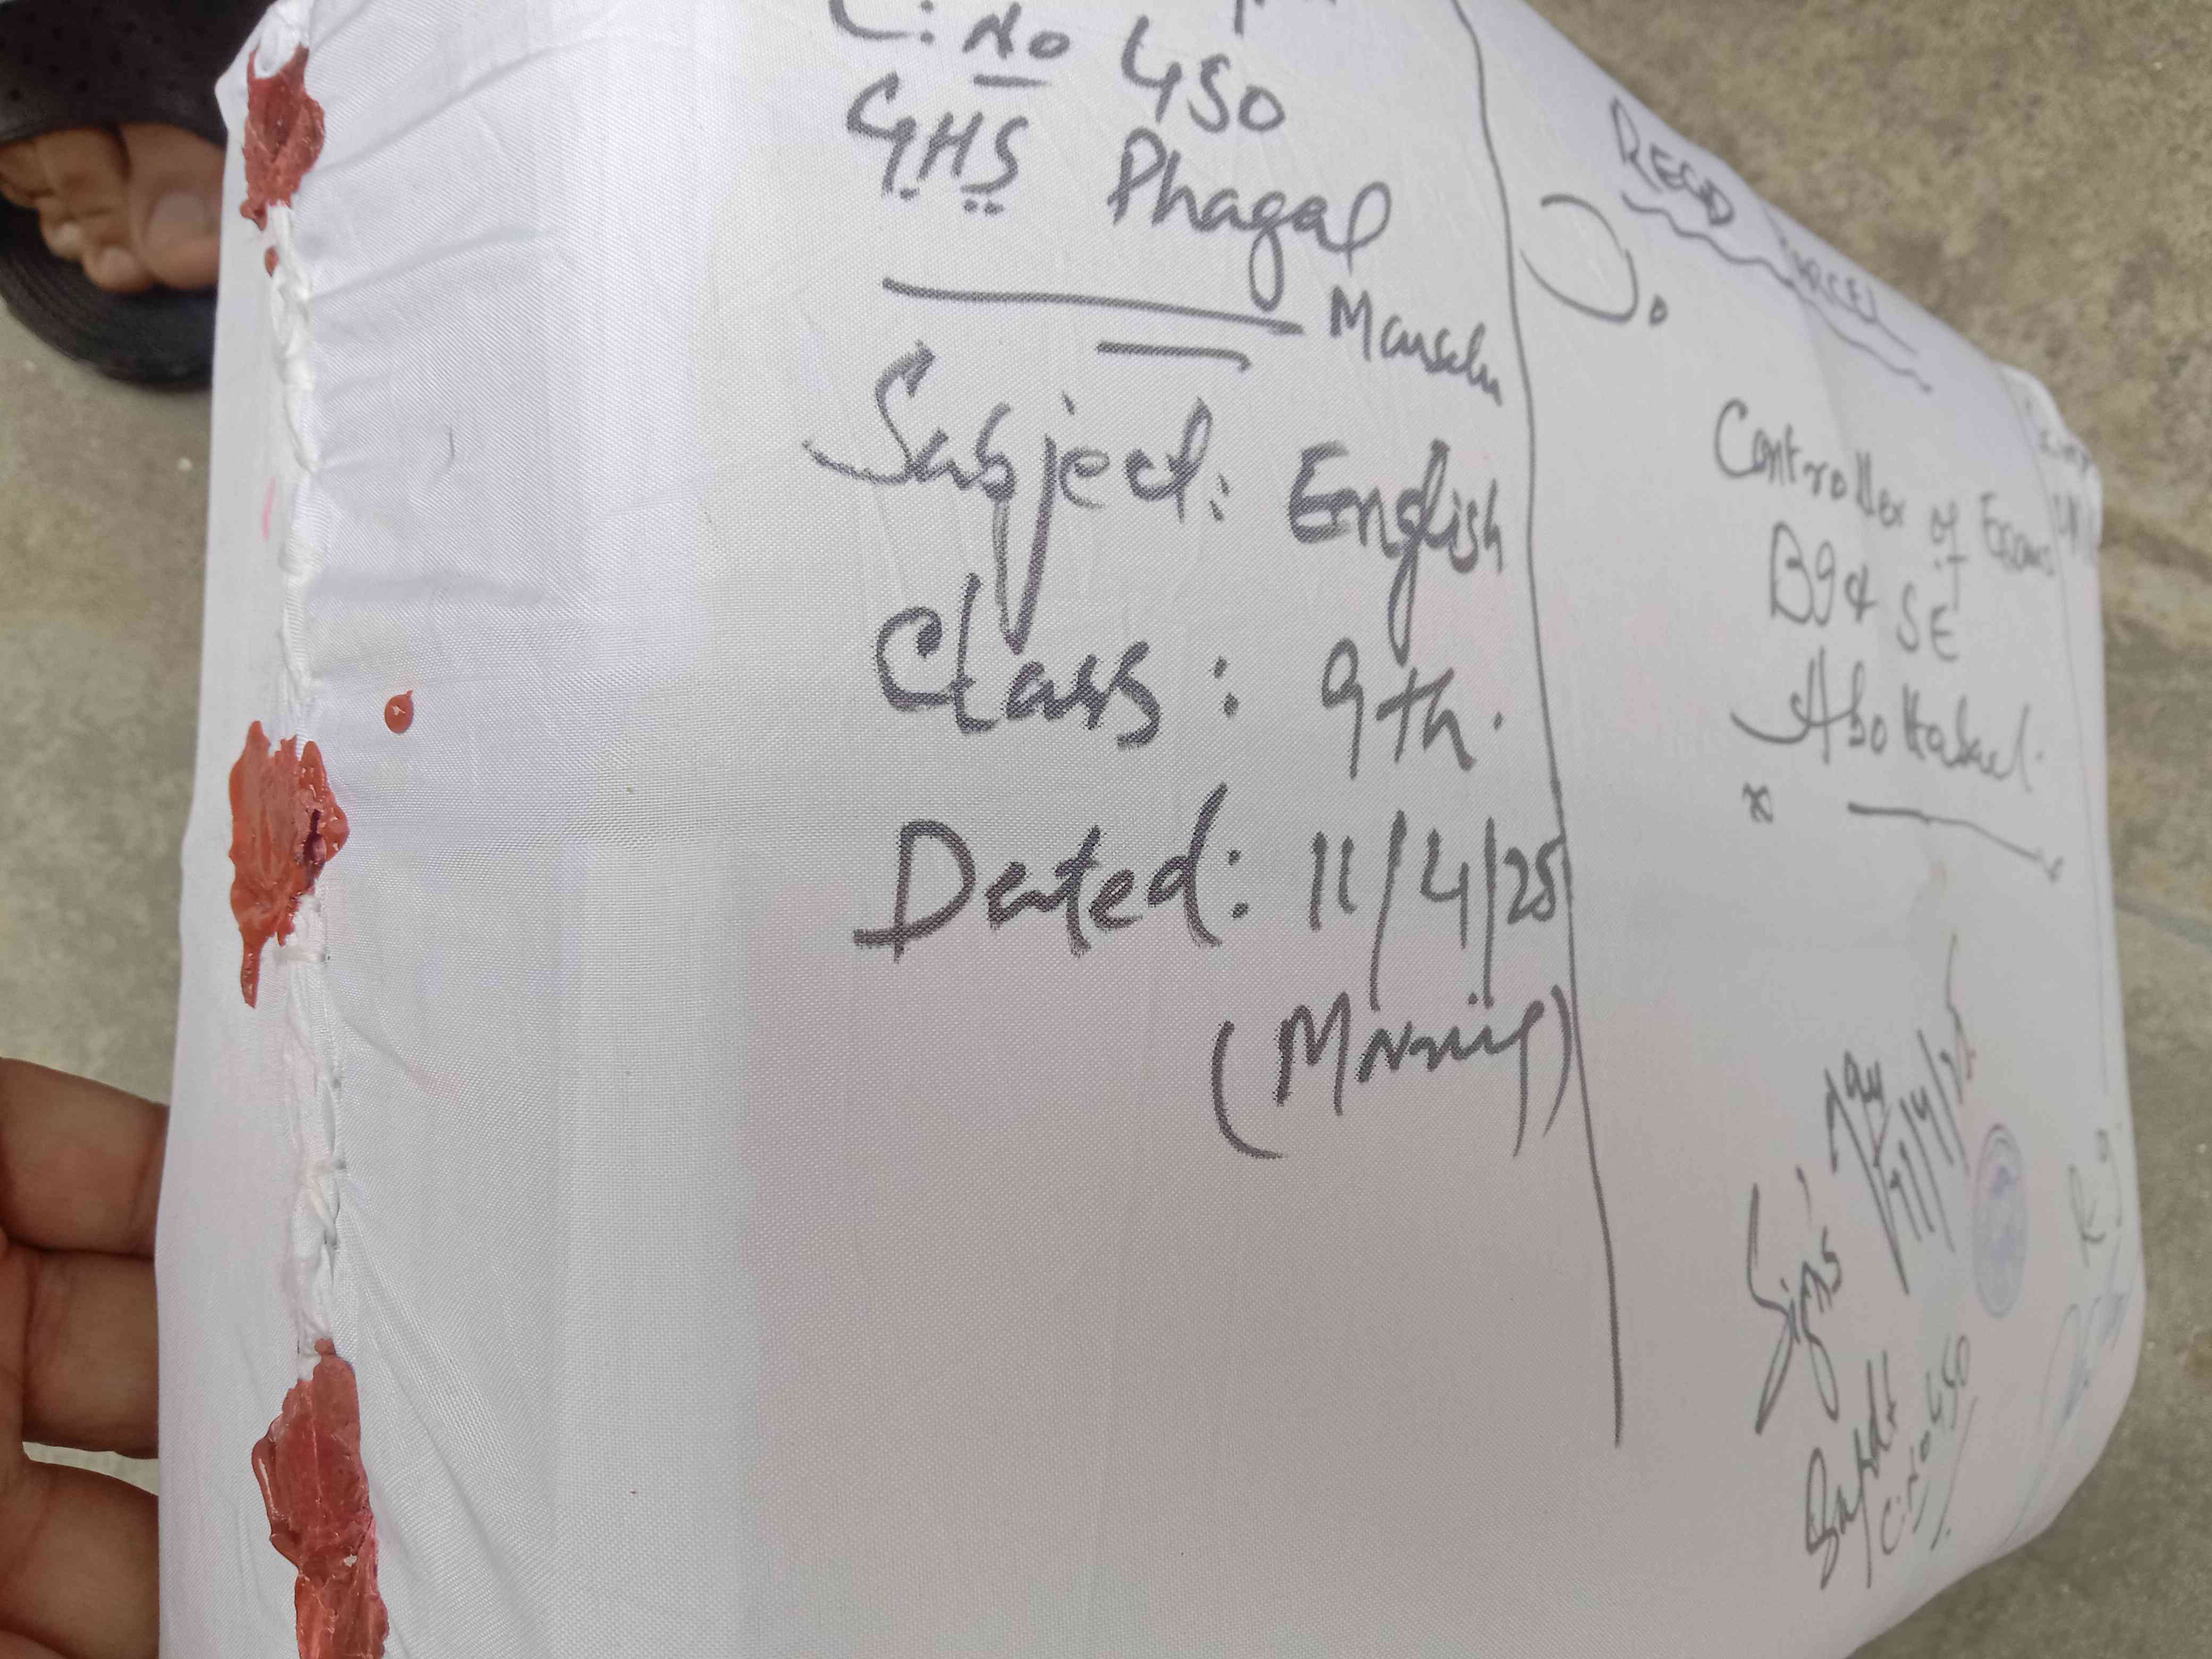 C: No 450
GHS Phagal
Mansehra
Subject: English
Class: 9th.
Dated: 11/4/25
(Morning)
REGD PARCEL
Controller of Exams
BI & SE
Abottabad.
Sign's
11/4/25
Supdt
C: No 450